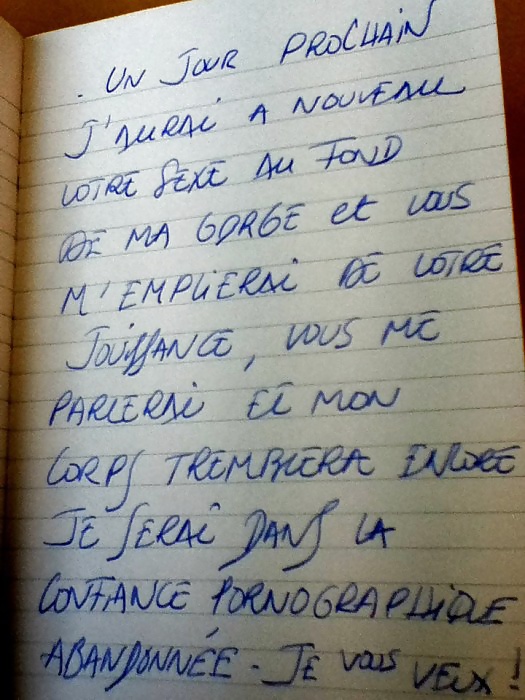 . UN JOUR PROCHAIN
J'AURAi A NOUVEAU
VOTRE SEXE AU FOND
DE MA GORGE et VOUS
M'EMPLiERAi DE VOTRE
JOUiSSANCE, VOUS ME
PARLERAi ET MON
CORPS TREMBLERA ENCORE
JE SERAi DANS LA
CONFIANCE PORNOGRAPHiQUE
ABANDONNÉE - JE VOUS VEUX !